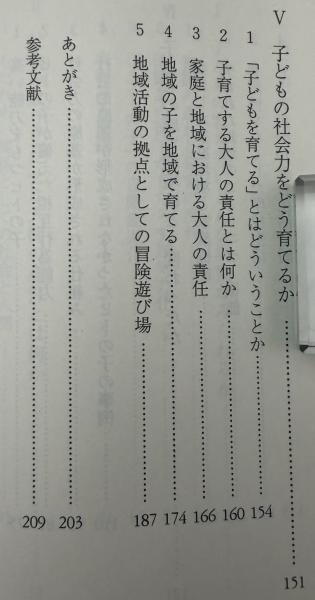 Ⅴ 子どもの社会力をどう育てるか……………………151
1 「子どもを育てる」とはどういうことか……………………154
2 子育てする大人の責任とは何か……………………160
3 家庭と地域における大人の責任……………………166
4 地域の子を地域で育てる……………………174
5 地域活動の拠点としての冒険遊び場……………………187
あとがき……………………203
参考文献……………………209